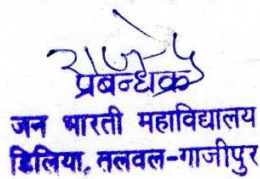 प्रबन्धक
जन भारती महाविद्यालय
डिलिया, तलवल-गाजीपुर